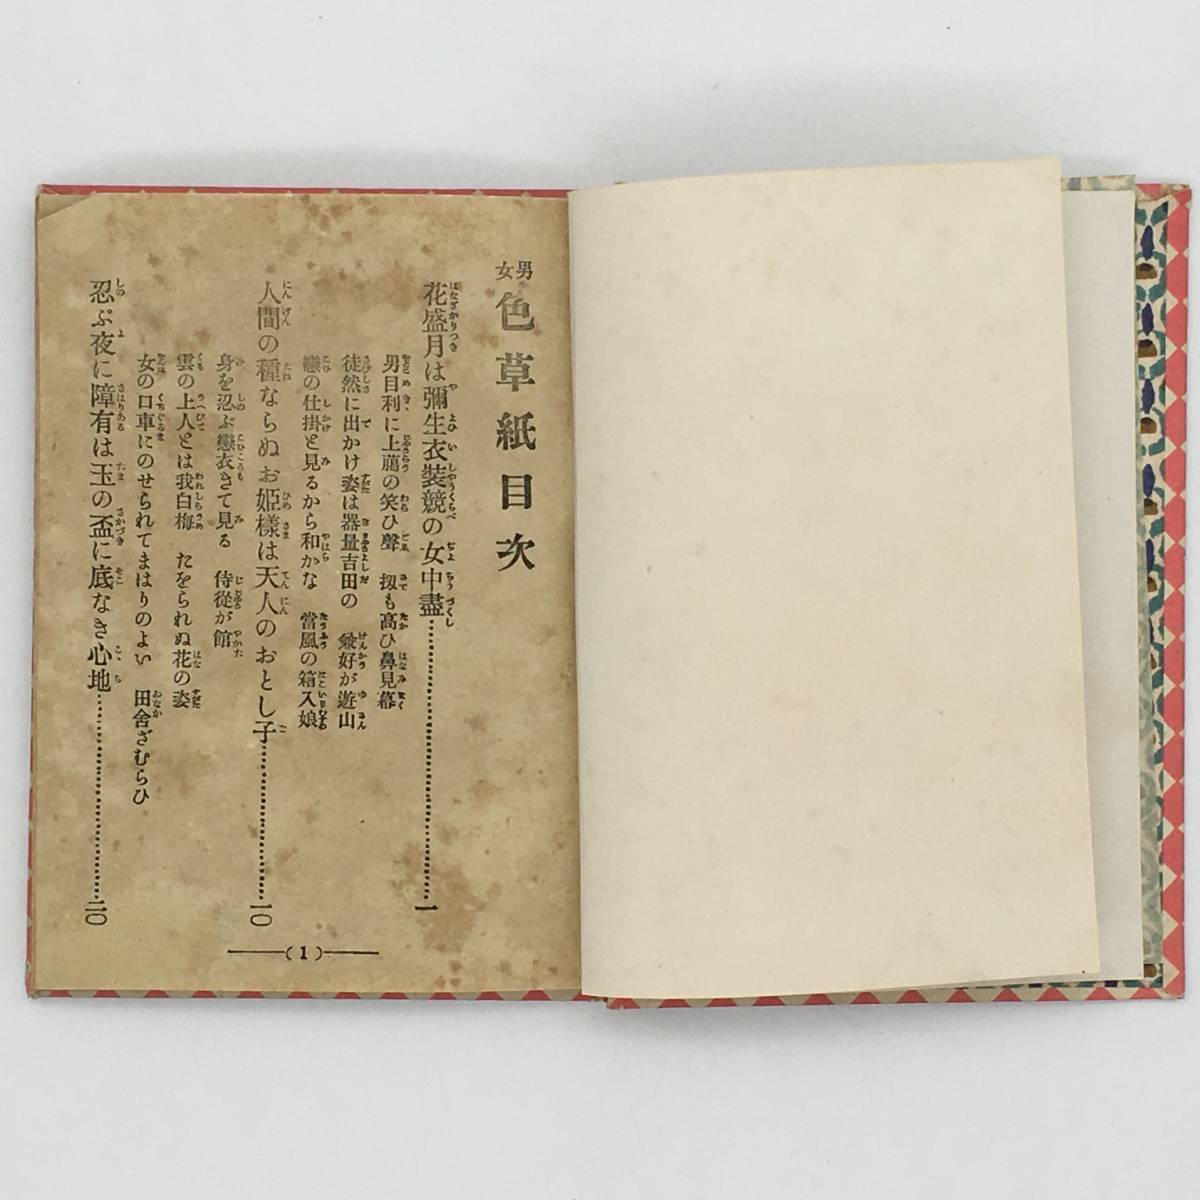 男女色草紙目次
花盛月は彌生衣装競の女中盡……一
男目利に上﨟の笑ひ聲　扨も高ひ鼻見幕
徒然に出かけ姿は器量吉田の　兼好が遊山
戀の仕掛と見るから和かな　當風の箱入娘
人間の種ならぬお姫樣は天人のおとし子……一〇
身を忍ぶ戀衣きて見る　侍從が館
雲の上人とは我白梅　たをられぬ花の姿
女の口車にのせられてまはりのよい　田舍ざむらひ
忍ぶ夜に障有は玉の盃に底なき心地……二〇
(1)